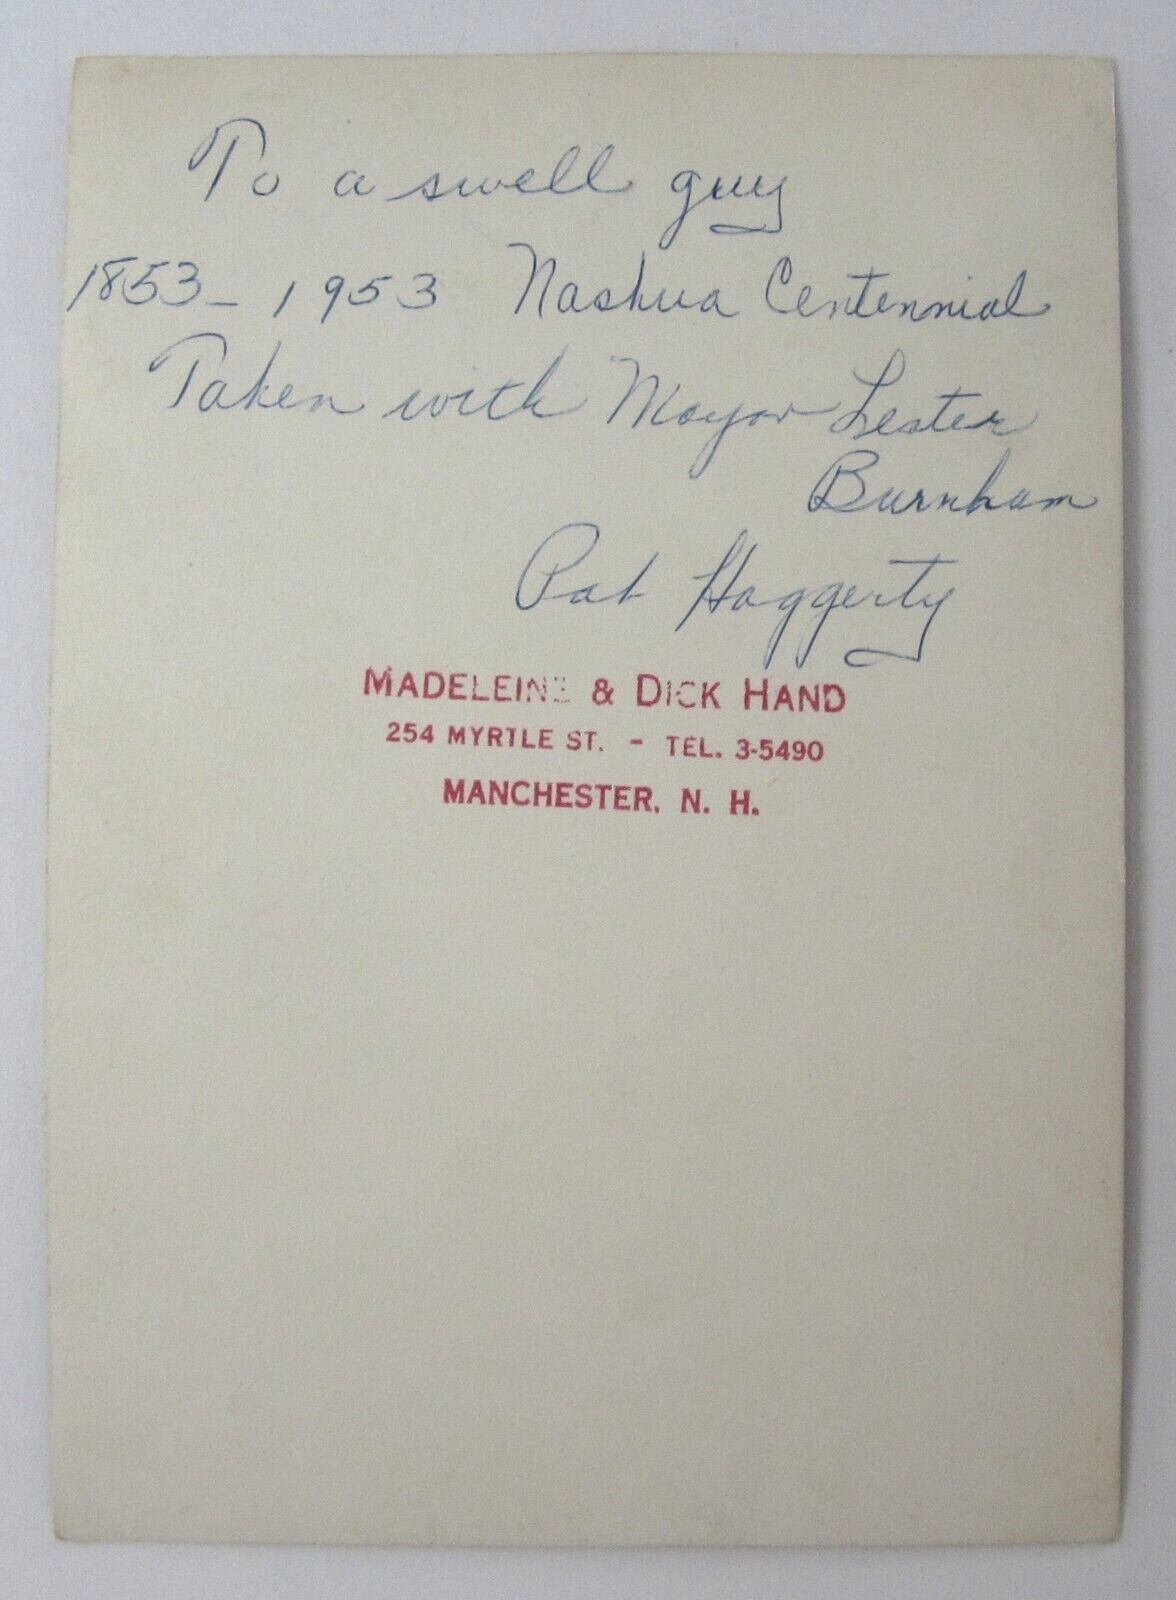 To a swell guy
1853 - 1953 Nashua Centennial
Taken with Mayor Lester
Burnham
Pat Haggerty
MADELEINE & DICK HAND
254 MYRTLE ST. - TEL. 3-5490
MANCHESTER, N. H.